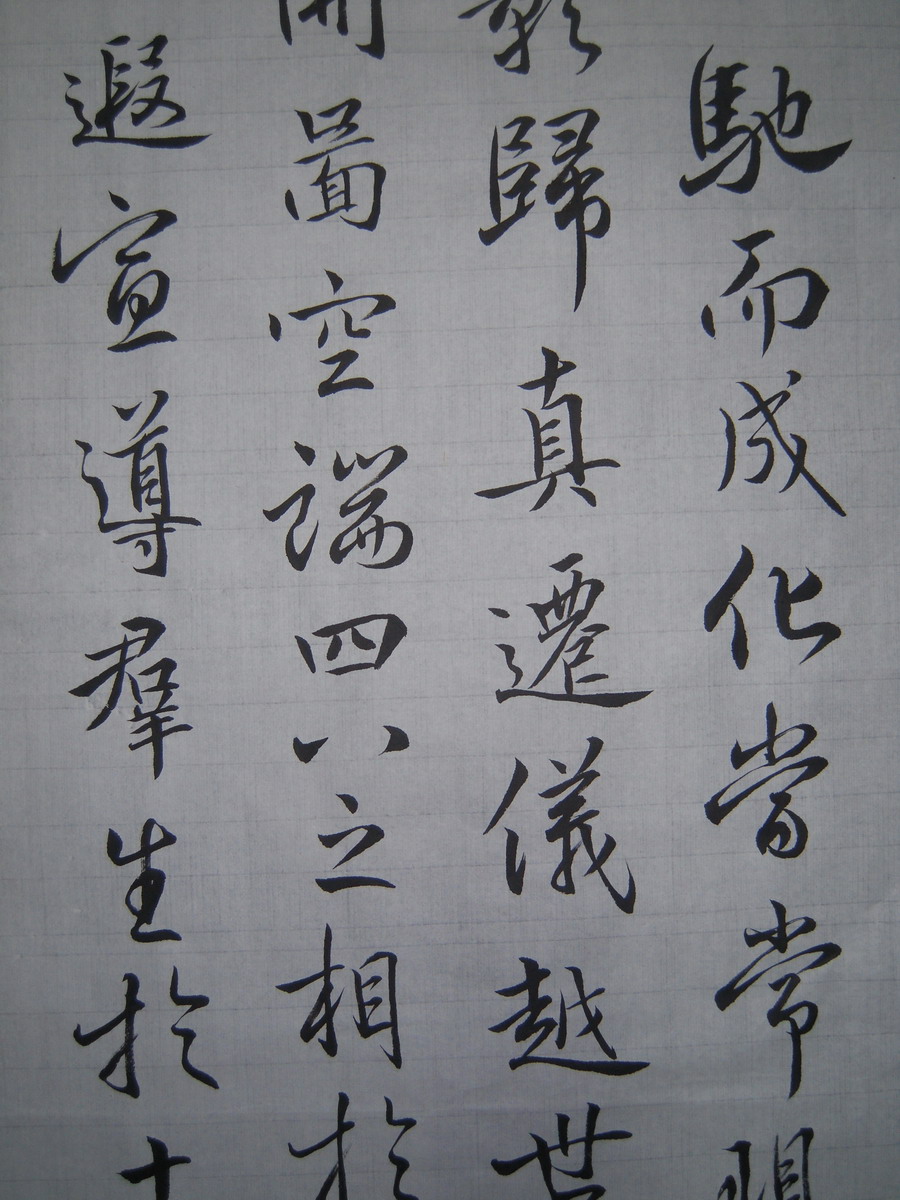 馳而成化當常現
影歸真遷儀越世
開圖空端四八之相於
遐宣導羣生於十